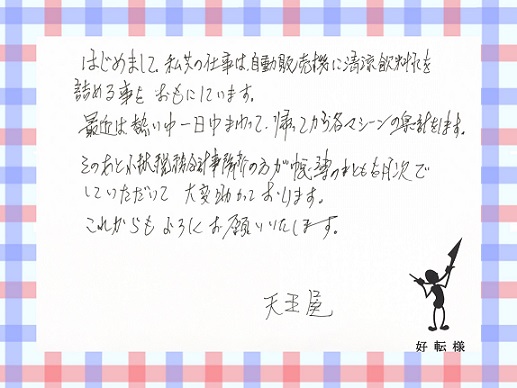 はじめまして、私共の仕事は、自動販売機に清涼飲料水を
詰める事を おもにしています。
最近は暑い中一日中まわって、帰ってから各マシーンの集計をします。
そのあと小枝税務会計事務所の方が帳簿のまとめを月次で
していただいて 大変助かっております。
これからも よろしくお願いいたします。
天王屋
好転様